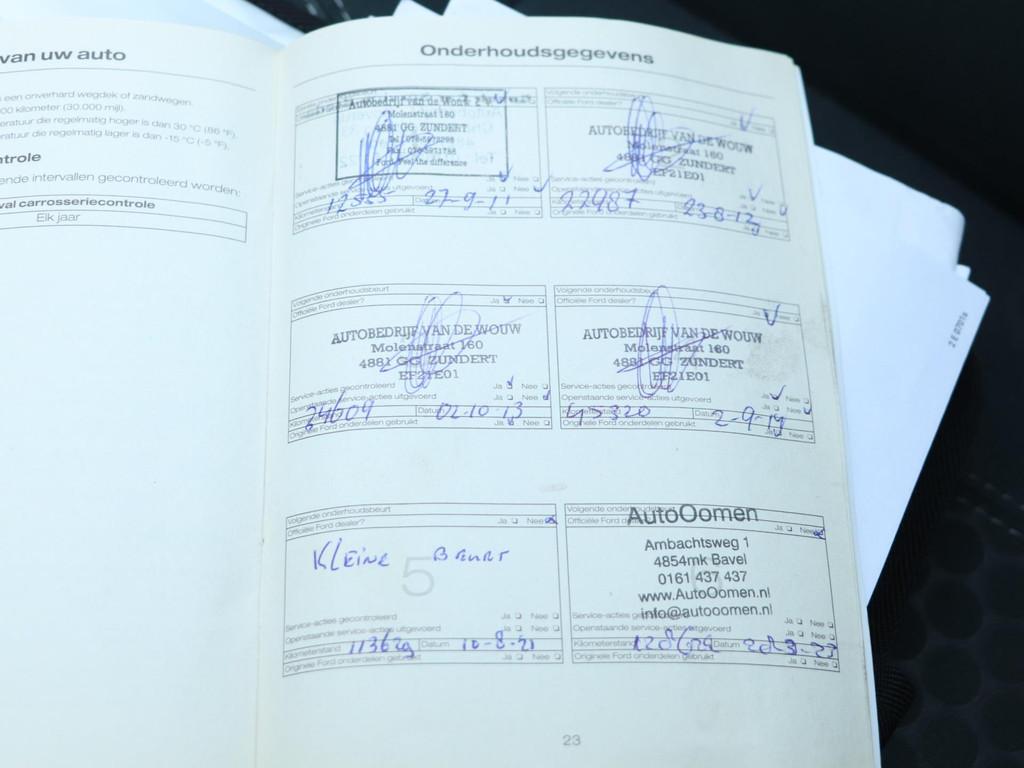 van uw auto
s een onverhard wegdek of zandwegen.
00 kilometer (30.000 mijl).
eratuur die regelmatig hoger is dan 30 °C (86 °F).
eratuur die regelmatig lager is dan -15 °C (-5 °F).
ntrole
ende intervallen gecontroleerd worden:
val carrosseriecontrole
Elk jaar
Onderhoudsgegevens
Autobedrijf van de Wouw
Molenstraat 160
4881 GG ZUNDERT
Ford. Feel the difference
Service-acties
Openstaande service-acties uitgevoerd
Ja Nee
27-9-11
Originele Ford onderdelen gebruikt
Ja Nee
Volgende onderhoudsbeurt
Officiële Ford dealer?
AUTOBEDRIJF VAN DE WOUW
Molenstraat 160
4881 GG ZUNDERT
EF21E01
Service-acties gecontroleerd
Openstaande service-acties uitgevoerd
Ja Nee
22987 23-8-12
Originele Ford onderdelen gebruikt
Ja Nee
Volgende onderhoudsbeurt
Officiële Ford dealer? Ja Nee
AUTOBEDRIJF VAN DE WOUW
Molenstraat 160
4881 GG ZUNDERT
EF21E01
Service-acties gecontroleerd Ja Nee
Openstaande service-acties uitgevoerd Ja Nee
Datum 02-10-13
Originele Ford onderdelen gebruikt Ja Nee
Volgende onderhoudsbeurt
Officiële Ford dealer? Ja Nee
AUTOBEDRIJF VAN DE WOUW
Molenstraat 160
4881 GG ZUNDERT
EF21E01
Service-acties gecontroleerd Ja Nee
Openstaande service-acties uitgevoerd Ja Nee
Datum 2-9-14
Originele Ford onderdelen gebruikt Ja Nee
Volgende onderhoudsbeurt
Officiële Ford dealer? Ja Nee
Kleine Beurt
5
Service-acties gecontroleerd Ja Nee
Openstaande service-acties uitgevoerd Ja Nee
Kilometerstand 113629 Datum 10-8-21
Originele Ford onderdelen gebruikt Ja Nee
Volgende onderhoudsbeurt
Officiële Ford dealer? Ja Nee
AutoOomen
Ambachtsweg 1
4854mk Bavel
0161 437 437
www.AutoOomen.nl
info@autooomen.nl
Service-acties gecontroleerd Ja Nee
Openstaande service-acties uitgevoerd Ja Nee
Kilometerstand Datum
Originele Ford onderdelen gebruikt Ja Nee
23